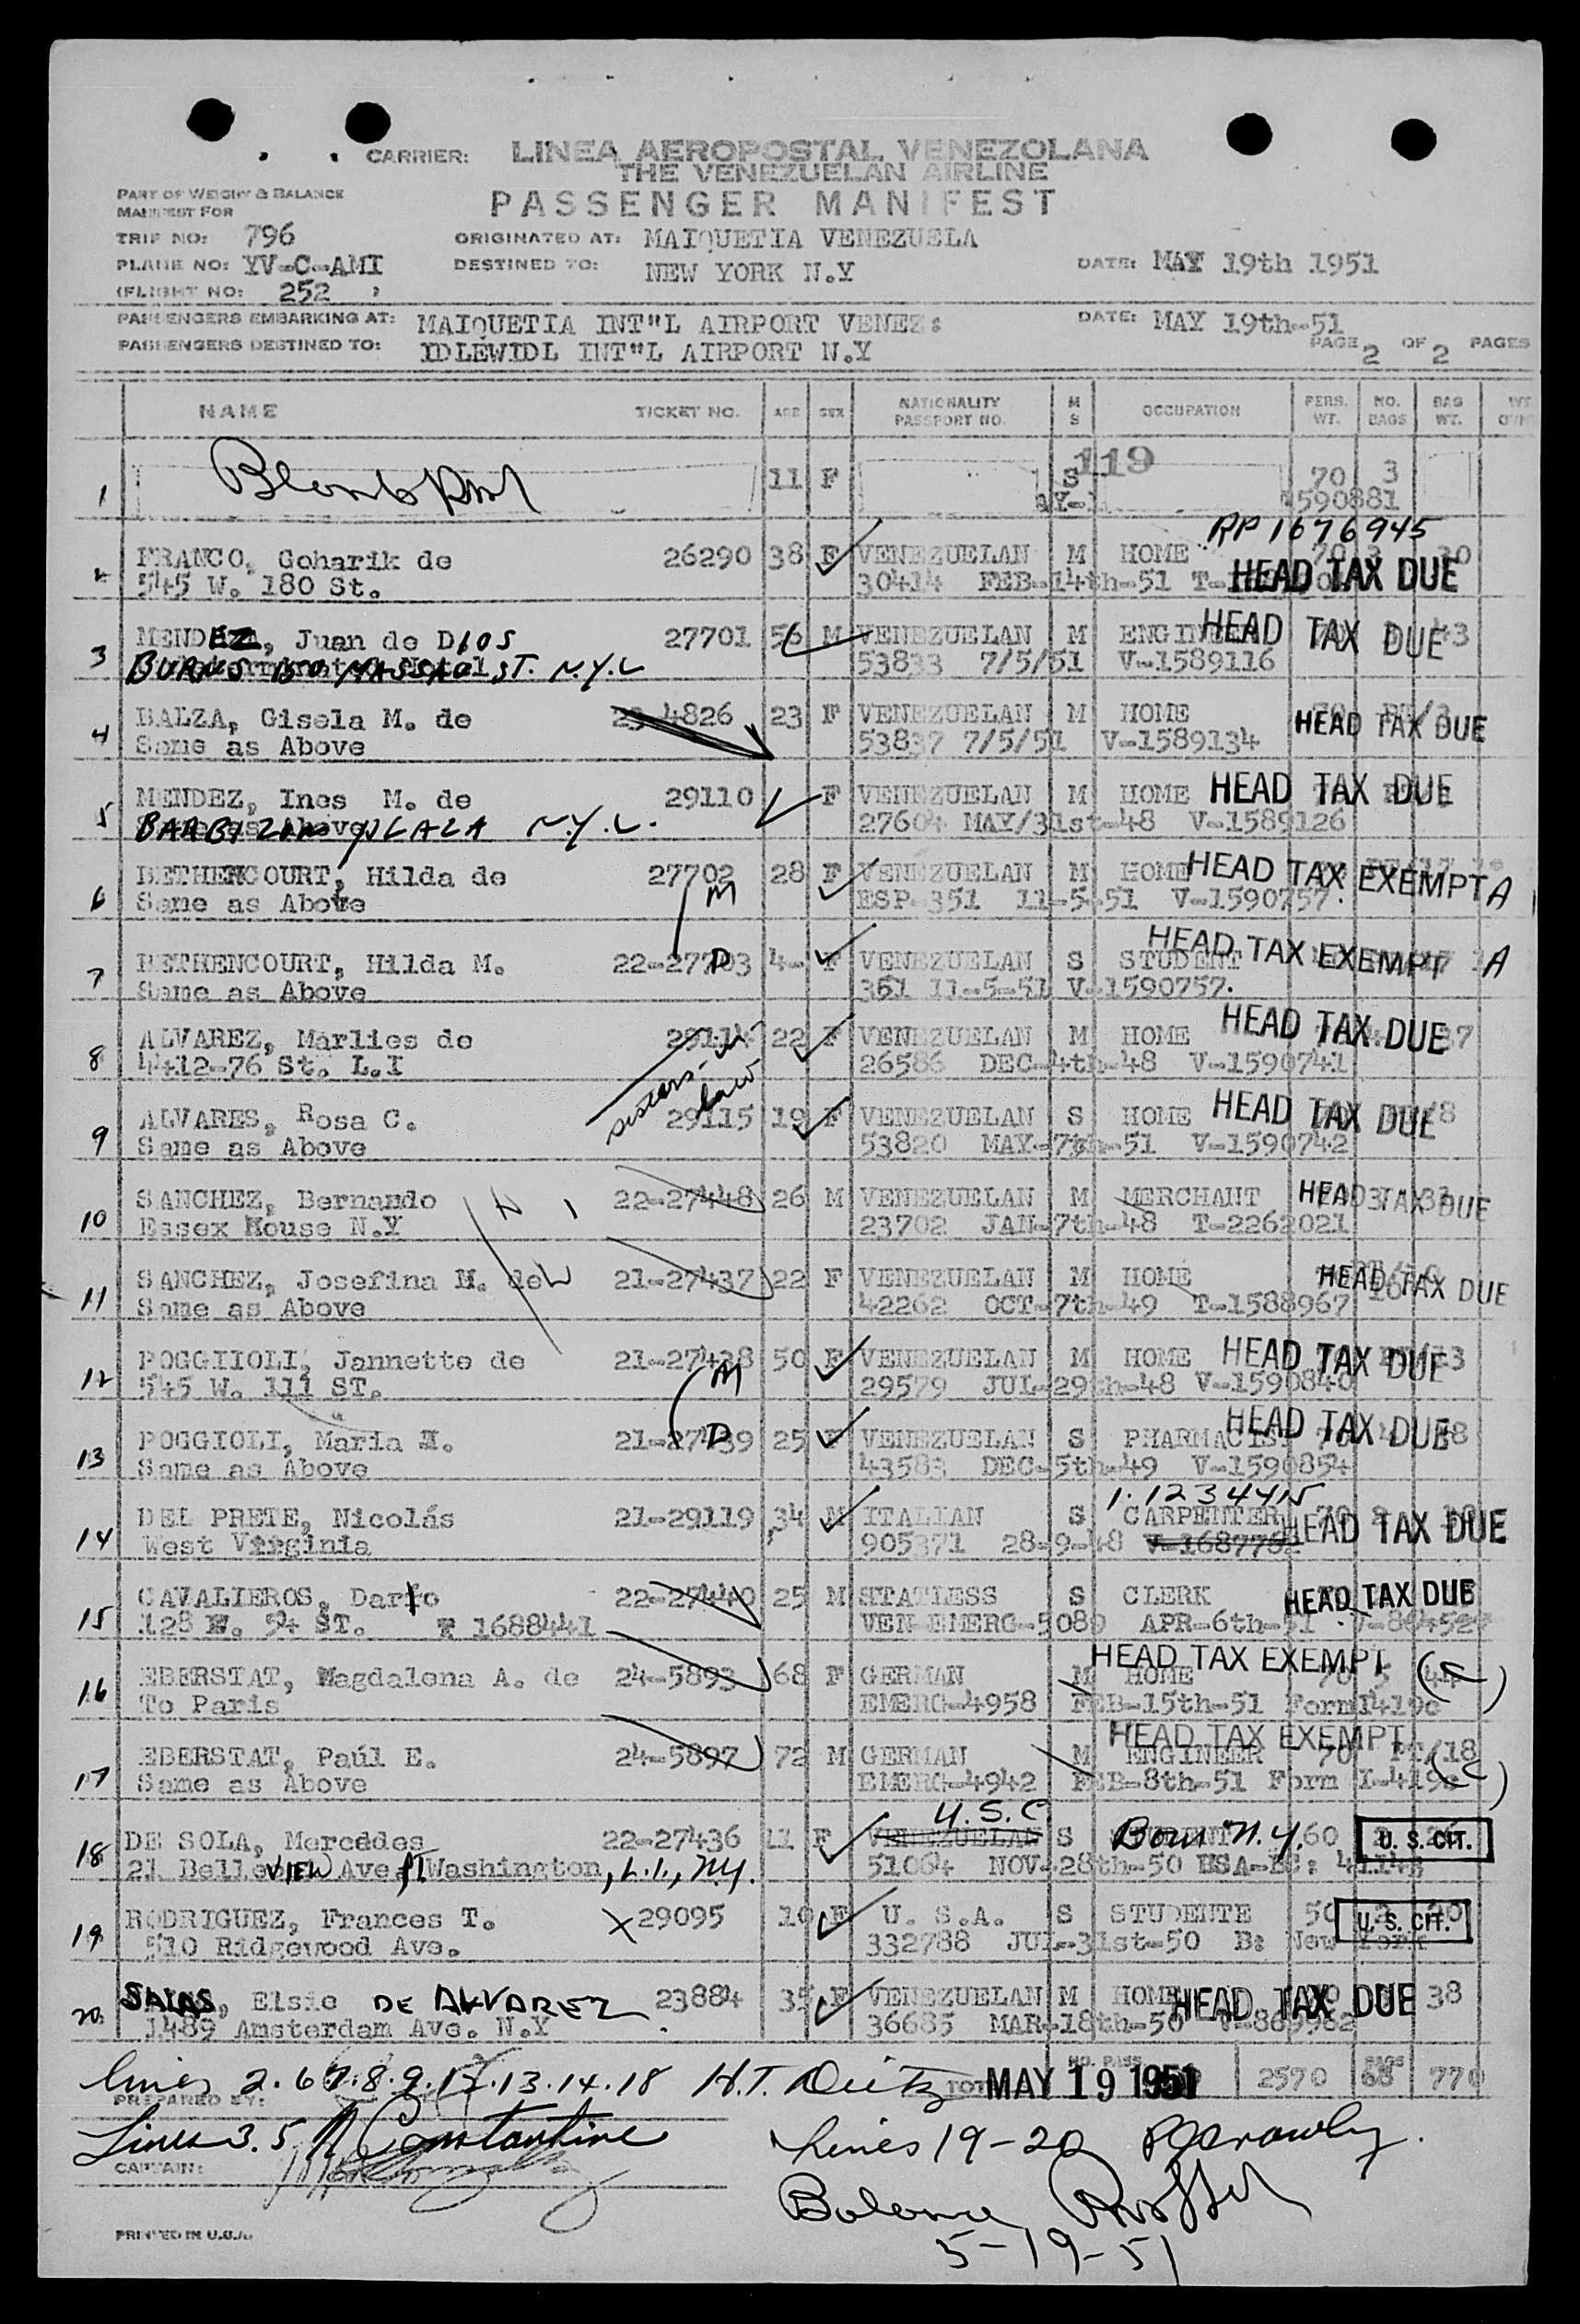 CARRIER: LINEA AEROPOSTAL VENEZOLANA
THE VENEZUELAN AIRLINE
PASSENGER MANIFEST
PART OF WEIGHT & BALANCE
MANIFEST FOR
TRIP NO: 796 ORIGINATED AT: MAIQUETIA VENEZUELA
PLANE NO: YV-C-AMI DESTINED TO: NEW YORK N.Y DATE: MAY 19th 1951
(FLIGHT NO: 252 )
PASSENGERS EMBARKING AT: MAIQUETIA INT"L AIRPORT VENEZ: DATE: MAY 19th-51
PASSENGERS DESTINED TO: IDLEWIDL INT"L AIRPORT N.Y PAGE 2 OF 2 PAGES
NAME TICKET NO. AGE SEX NATIONALITY PASSPORT NO. M S OCCUPATION PERS. WT. NO. BAGS BAG WT. WT
119
1 11 F S 70 3
590881
RP 1676945
2 FRANCO, Goharik de 26290 38 F VENEZUELAN M HOME 70
545 W. 180 St. 30414 FEB-14th-51 HEAD TAX DUE
3 MENDEZ, Juan de DIOS 27701 56 M VENEZUELAN M ENGINEER HEAD TAX DUE 43
ST. N.Y.C 53833 7/5/51 V-1589116
4 BALZA, Gisela M. de 4826 23 F VENEZUELAN M HOME HEAD TAX DUE
Same as Above 53837 7/5/51 V-1589134
5 MENDEZ, Ines M. de 29110 F VENEZUELAN M HOME HEAD TAX DUE
BARBIZON PLAZA N.Y.C. 27604 MAY/31st-48 V-1589126
6 BETHENCOURT, Hilda de 27702 28 F VENEZUELAN M HOME HEAD TAX EXEMPT A
Same as Above M ESP. 351 11-5-51 V-1590757.
7 BETHENCOURT, Hilda M. 22-27703 D 4- F VENEZUELAN S STUDENT HEAD TAX EXEMPT A
Same as Above 351 11-5-51 V-1590757.
8 ALVAREZ, Marlies de 29114 22 F VENEZUELAN M HOME HEAD TAX DUE 37
4412-76 St. L.I 26586 DEC-4th-48 V-1590741
sisters-in law
9 ALVARES, Rosa C. 29115 19 F VENEZUELAN S HOME HEAD TAX DUE
Same as Above 53820 MAY-7th-51 V-1590742
10 SANCHEZ, Bernando H 22-27448 26 M VENEZUELAN M MERCHANT HEAD TAX DUE
Essex House N.Y 23702 JAN-7th-48 T-2262021
11 SANCHEZ, Josefina M. de W 21-27437 22 F VENEZUELAN M HOME HEAD TAX DUE
Same as Above 42262 OCT-7th-49 T-1588967
12 POGGIIOLI, Jannette de 21-27438 50 F VENEZUELAN M HOME HEAD TAX DUE
545 W. 111 ST. M 29579 JUL-29th-48 V-1590840
13 POGGIOLI, Maria 21-27439 D 25 F VENEZUELAN S PHARMACIST HEAD TAX DUE
Same as Above 43583 DEC-5th-49 V-1590854
14 DEL PRETE, Nicolás 21-29119 34 M ITALIAN S CARPENTER HEAD TAX DUE
West Virginia 905371 28-9-48
15 CAVALIEROS, Dario 22-27440 25 M STATLESS S CLERK HEAD TAX DUE
128 54 ST. 1688441 VEN EMERG-5089 APR-6th-51
16 EBERSTAT, Magdalena A. de 24-5893 68 F GERMAN M HOME HEAD TAX EXEMPT 70 5 44
To Paris EMERG-4958 FEB-15th-51 Form
17 EBERSTAT, Paúl E. 24-5897 72 M GERMAN M ENGINEER HEAD TAX EXEMPT 70 /18
Same as Above EMERG-4942 FEB-8th-51 Form I-419c
U.S.C
18 DE SOLA, Mercedes 22-27436 11 F VENEZUELAN S Born N.Y. 60 U. S. CIT.
21 BelleVIEW Ave, PT Washington, L.I., N.Y. 51064 NOV-28th-50
19 RODRIGUEZ, Frances T. 29095 10 F U. S.A. S STUDENTE 50 U. S. CIT.
510 Ridgewood Ave. 332788 JUL-31st-50 B: New York
20 SALAS, Elsie DE ALVAREZ 23884 35 F VENEZUELAN M HOME HEAD TAX DUE 38
1489 Amsterdam Ave. N.Y 36685 MAR-18th-50
NO. PASS MAY 19 1951 2570 BAGS 68 770
lines 2.6 7.8.9.12.13.14.18 H.T. Deitz
PREPARED BY:
Lines 3.5 Constantine
Lines 19-20
CAPTAIN:
Balance
5-19-51
PRINTED IN U.S.A.